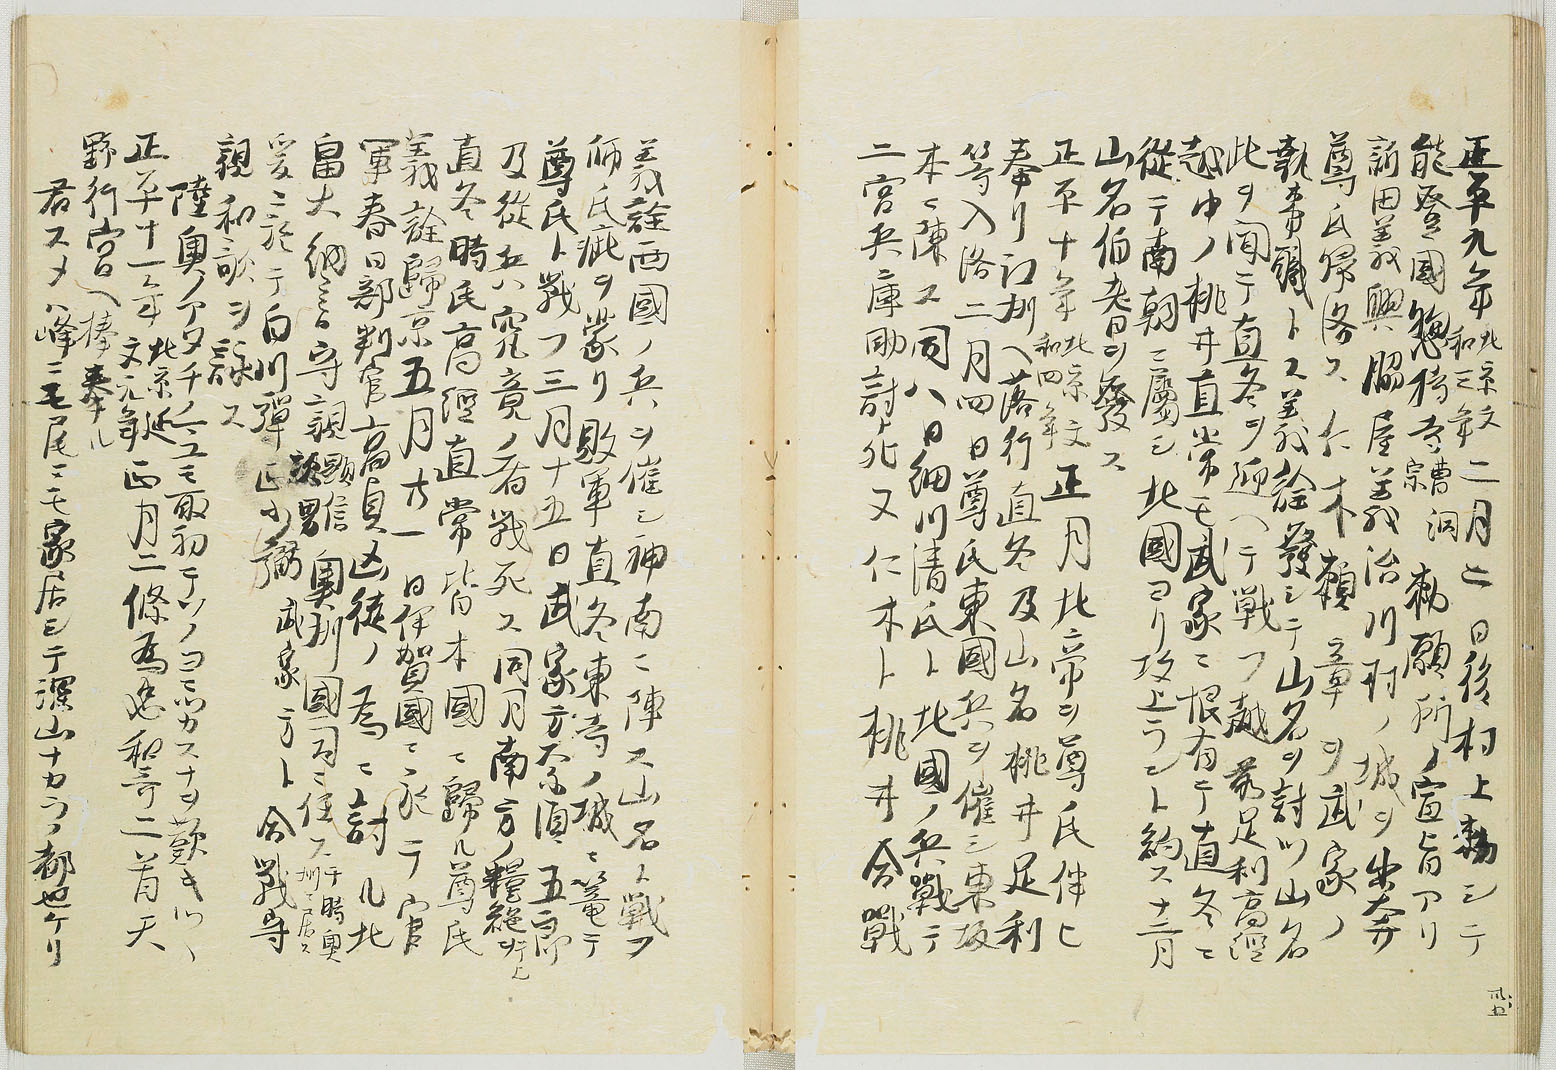 正平九年北京文和三年二月七日後村上勅シテ
能登國惣持寺曹洞宗勅願所ノ宣旨アリ
新田義興脇屋義治川村ノ城ヲ出奔
尊氏帰洛ス仁木頼章ヲ武家ノ
執事職トス義詮發シテ山名ヲ討ツ山名
此ヲ聞テ直冬ヲ迎ヘテ戦フ越前足利高經
越中ノ桃井直常モ武家ニ恨有テ直冬ニ
從テ南朝ニ屬シ北國ヨリ攻上ラント約ス十二月
山名伯耆ヲ發ス
正平十年北京文和四年正月北帝ヲ尊氏伴ヒ
奉リ江州ヘ落行直冬及山名桃井足利
等入洛二月四日尊氏東國兵ヲ催シ東坂
本ニ陳ス同八日細川清氏ト北國ノ兵戰テ
二宮兵庫助討死又仁木ト桃井合戰
義詮西國ノ兵ヲ催シ神南ニ陣ス山名ト戰フ
師氏疵ヲ蒙リ敗軍直冬東寺ノ城ニ篭テ
尊氏ト戰フ三月十五日武家方奈須五郎
及從兵究竟ノ者戦死ス同月南方ノ糧絶
直冬時氏高經直常皆本國ニ歸ル尊氏
義詮歸京五月廿一日伊賀國ニ於テ官
軍春日部判官高貞凶徒ノ為ニ討ル北
畠大納言守親顕信次男奥州國司ニ任ス干時奥州ニ居ス
爰ニ於テ白川彈正少弼武家方ト合戰守
親和歌ヲ詠ス
陸奥ノアタチノマユミ取初テソノヨニヒカスナヲ歎キツヽ
正平十一年北京延文元年正月二條為忠和哥二首天
野行宮ヘ捧奉ル
君スメハ峰ニモ尾ニモ家居シテ深山ナカラノ都也ケリ